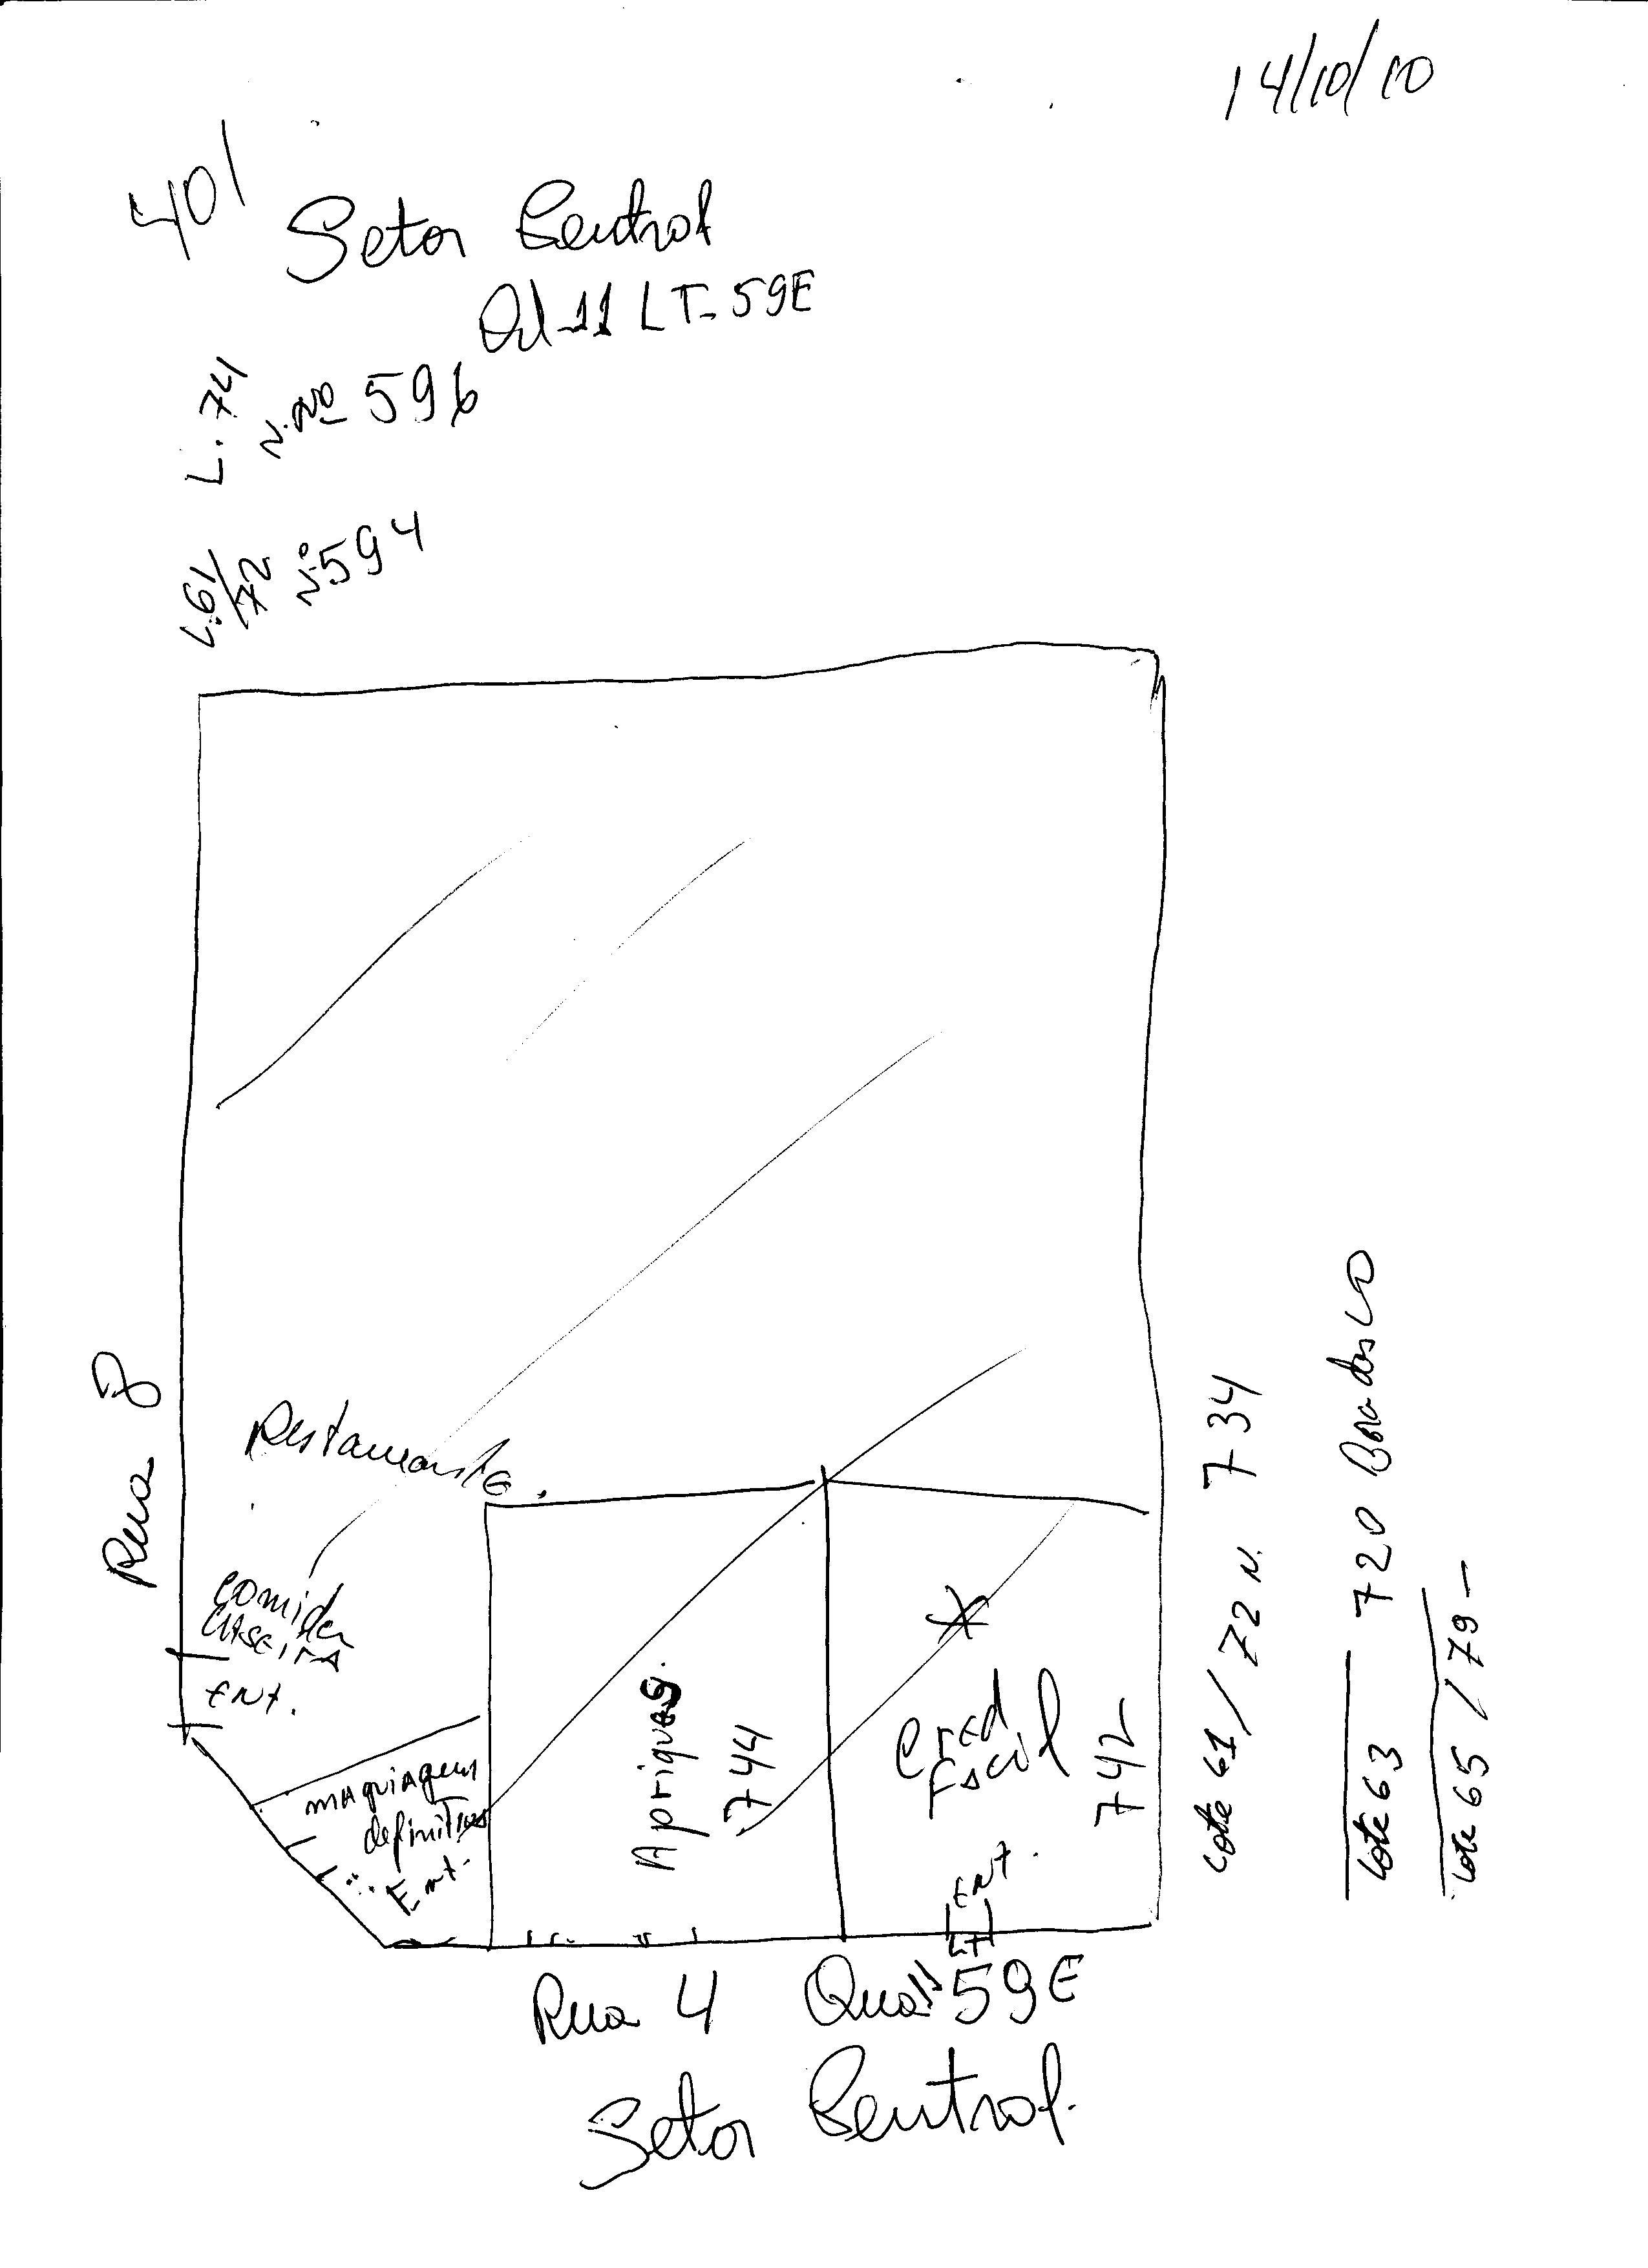 14/10/10
401
Setor Central
Qd-11 LT-59E
L. 74
N. Nº 596
L.61/72
Nº 594
Rua 8
Restaurante.
comida
caseira
Ent.
maquiagem
definitiva
Ent.
744
Cred
Fácil
742
Ent.
Lote 61/72 N. 734
Lote 63 720 Bradesco
Lote 65/79-
Rua 4 Qua 11 LT 59E
Setor Central.